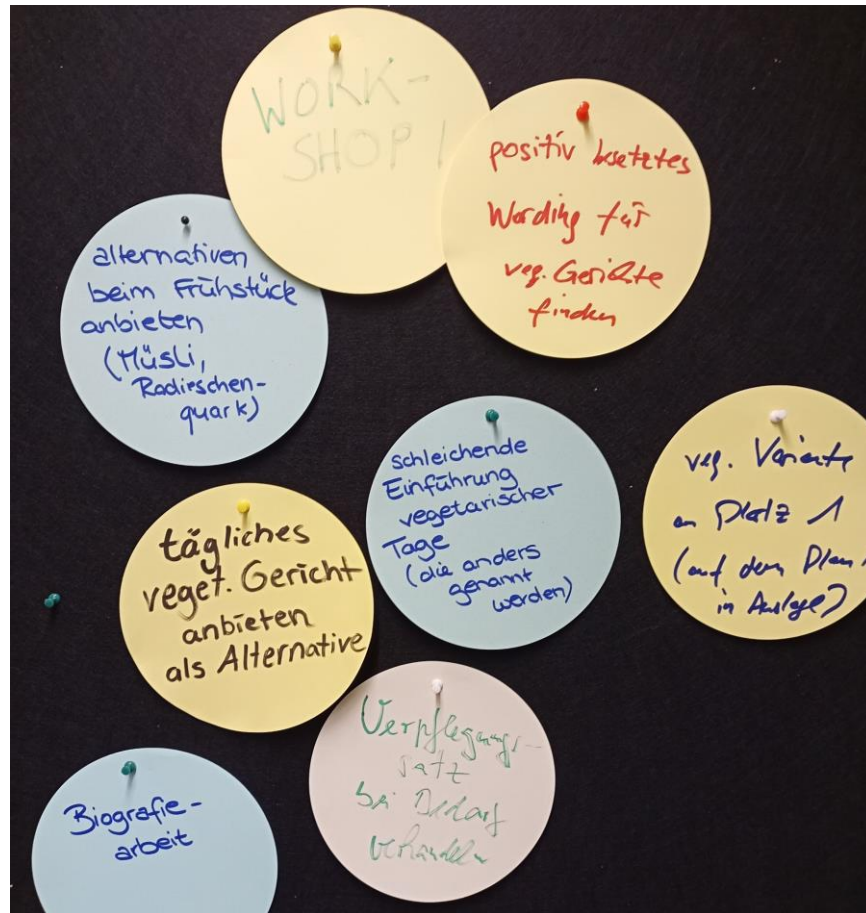 WORK-
SHOP!
positiv besetztes
Wording für
veg. Gerichte
finden
alternativen
beim Frühstück
anbieten
(Müsli,
Radieschen-
quark)
schleichende
Einführung
vegetarischer
Tage
(die anders
genannt
werden)
veg. Variante
an Platz 1
(auf dem Plan,
in Auslage)
tägliches
veget. Gericht
anbieten
als Alternative
Verpflegungs-
satz
bei Bedarf
verhandeln
Biografie-
arbeit